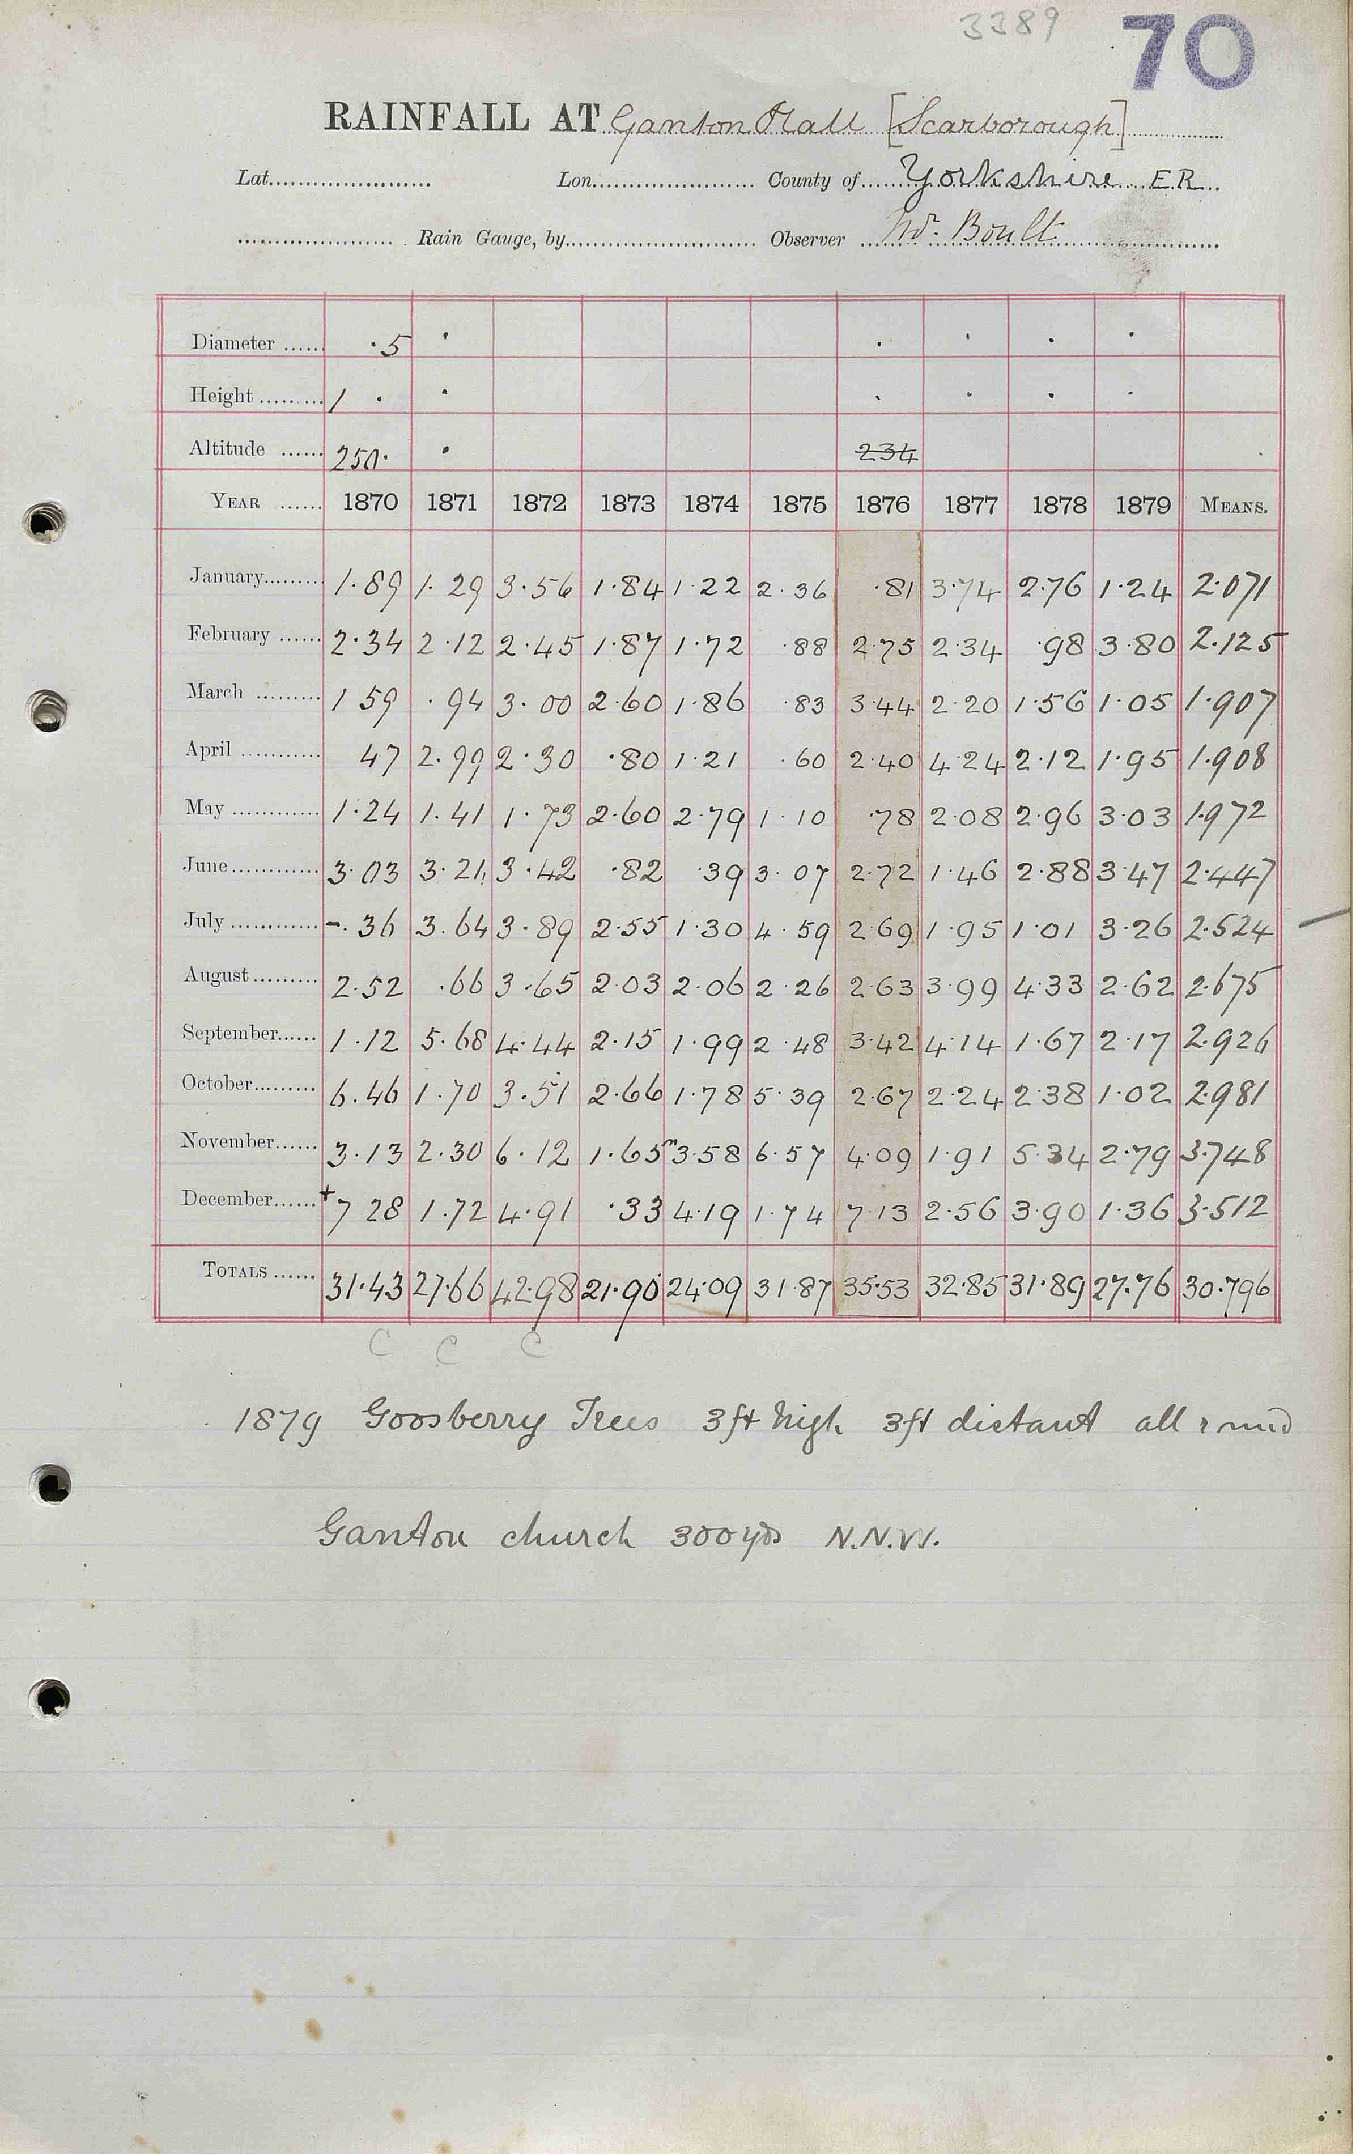 3389 70
RAINFALL AT Ganton Hall [Scarborough]
Lat. Lon. County of Yorkshire ER
Rain Gauge, by Observer Mr. Boult
Diameter ·5 · · · · ·
Height 1 · · · · · ·
Altitude 250· · 234
YEAR 1870 1871 1872 1873 1874 1875 1876 1877 1878 1879 MEANS.
January 1·89 1·29 3·56 1·84 1·22 2·36 ·81 3·74 2·76 1·24 2·071
February 2·34 2·12 2·45 1·87 1·72 ·88 2·75 2·34 ·98 3·80 2·125
March 1 59 ·94 3·00 2·60 1·86 ·83 3·44 2·20 1·56 1·05 1·907
April 47 2·99 2·30 ·80 1·21 ·60 2·40 4·24 2·12 1·95 1·908
May 1·24 1·41 1·73 2·60 2·79 1·10 ·78 2·08 2·96 3·03 1·972
June 3·03 3·21 3·42 ·82 ·39 3·07 2·72 1·46 2·88 3·47 2·447
July -·36 3·64 3·89 2·55 1·30 4·59 2·69 1·95 1·01 3·26 2·524
August 2·52 ·66 3·65 2·03 2·06 2·26 2·63 3·99 4·33 2·62 2·675
September 1·12 5·68 4·44 2·15 1·99 2·48 3·42 4·14 1·67 2·17 2·926
October 6·46 1·70 3·51 2·66 1·78 5·39 2·67 2·24 2·38 1·02 2·981
November 3·13 2·30 6·12 1·65 3·58 6·57 4·09 1·91 5·34 2·79 3·748
December +7 28 1·72 4·91 ·33 4·19 1·74 7·13 2·56 3·90 1·36 3·512
TOTALS 31·43 27·66 42·98 21·90 24·09 31·87 35·53 32·85 31·89 27·76 30·796
C C C
1879 Goosberry Trees 3ft high 3ft distant all round
Ganton church 300 yds N.N.W.